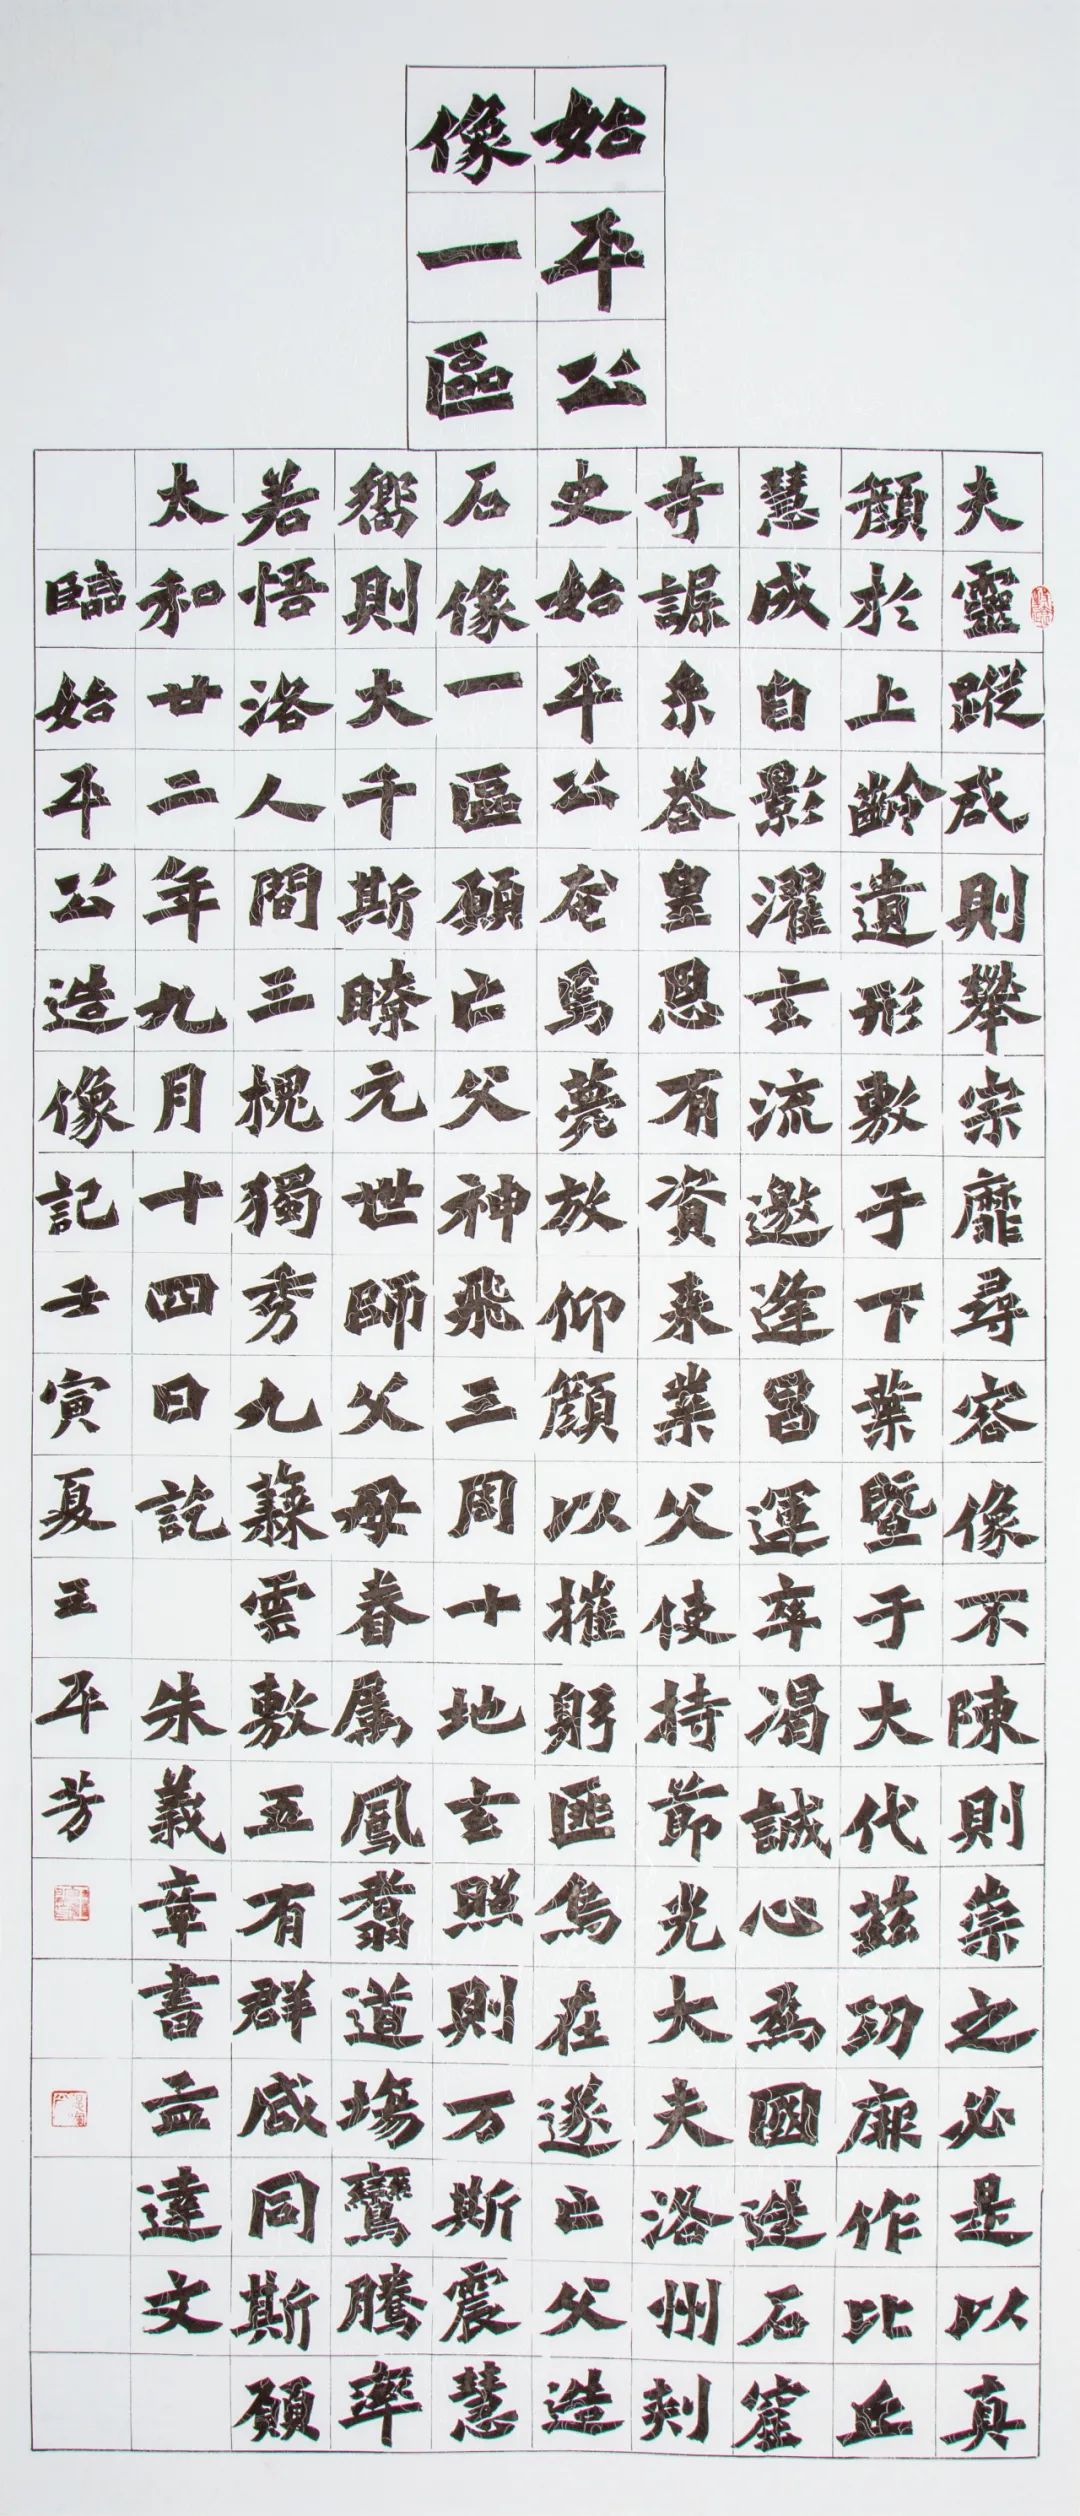 始平公
像一區
夫靈蹤咸則攀宗靡尋容像不陳則崇之必是以真
顏於上齡遺形敷于下葉暨于大代茲功厥作比丘
慧成自影濯玄流邀逢昌運率渴誠心為國造石窟
寺誐系荅皇恩有資來業父使持節光大夫洛州刾
史始平公奄焉薨放仰顏以摧躬匪烏在遂亡父造
石像一區願亡父神飛三周十地玄照則万斯震慧
嚮則大千斯瞭元世師父母眷属鳳翥道場鸞騰率
若悟洛人間三槐獨秀九蕀雲敷五有群咸同斯願
太和廿二年九月十四日訖 朱義章書孟達文
臨始平公造像記壬寅夏王平芳